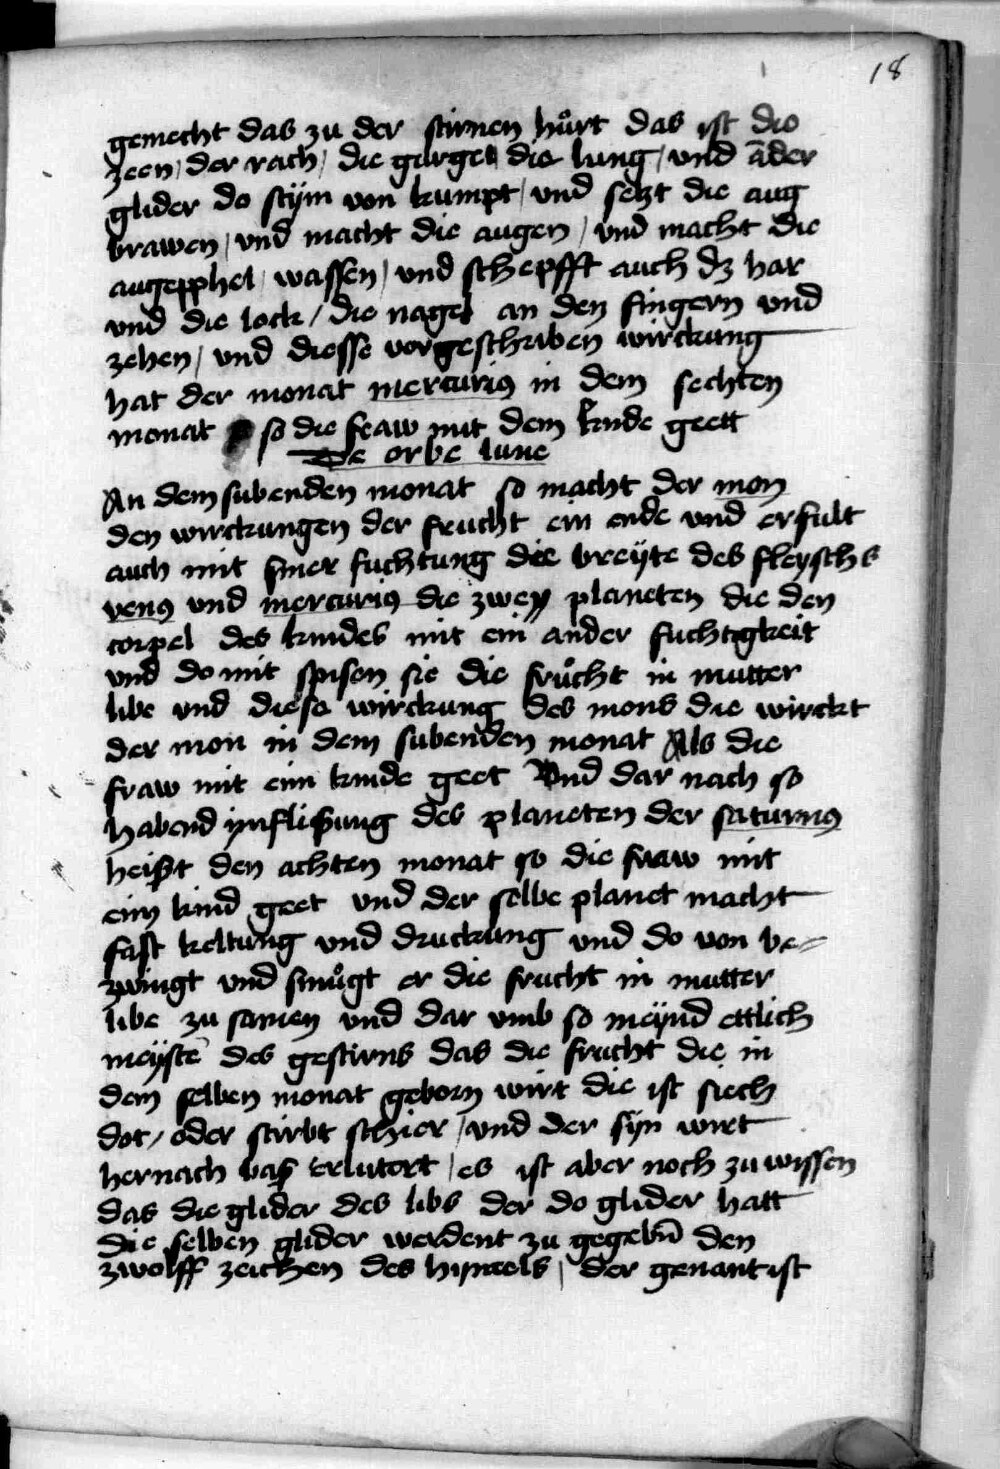 18
gemecht das zu der stirnen hůrt das ist die
zeen / der rach / die gurgel die lung / und ãder
glider do stÿm von kumpt / und setzt die aug
brawen / und macht die augen / und macht die
augepphel / wassen / und schepfft auch dz har
und die lock / die nagel an den fingern und
zehen / und diesse vorgeschriben wirckung
hat der monat mercurius in dem sechten
monat so die fraw mit dem kinde geett
De orbe lune
An dem subenden monat so macht der mon
den wirckungen der frucht ein ende und erfult
auch mit siner fuchtung die breÿte des fleyschs
venus und mercurius die zwey planeten die den
corpel des kindes mit ein ander fuchtigkeit
und do mit spisen sie die frůcht in mutter
libe und diese wirckung des mons die wirckt
der mon in dem subenden monat Als die
fraw mit eim kinde geet Und dar nach so
habend ynflißung des planeten der saturnus
heißt den achten monat so die fraw mit
eim kind geet und der selbe planet macht
fast keltung und druckung und do von be=
zwingt und smůgt er die frucht in mutter
libe zu samen und dar umb so meÿnd ettlich
meÿste᷑ des gestirns das die frucht die in
dem selben monat geborn wirt die ist siech
dot / oder stirbt schier / und der syn wirt
hernach baß erlutert / es ist aber noch zu wissen
das die glider des libs der do glider hatt
die selben glider werdent zu gegebñ den
zwolff zeichen des hymels / der genant ist